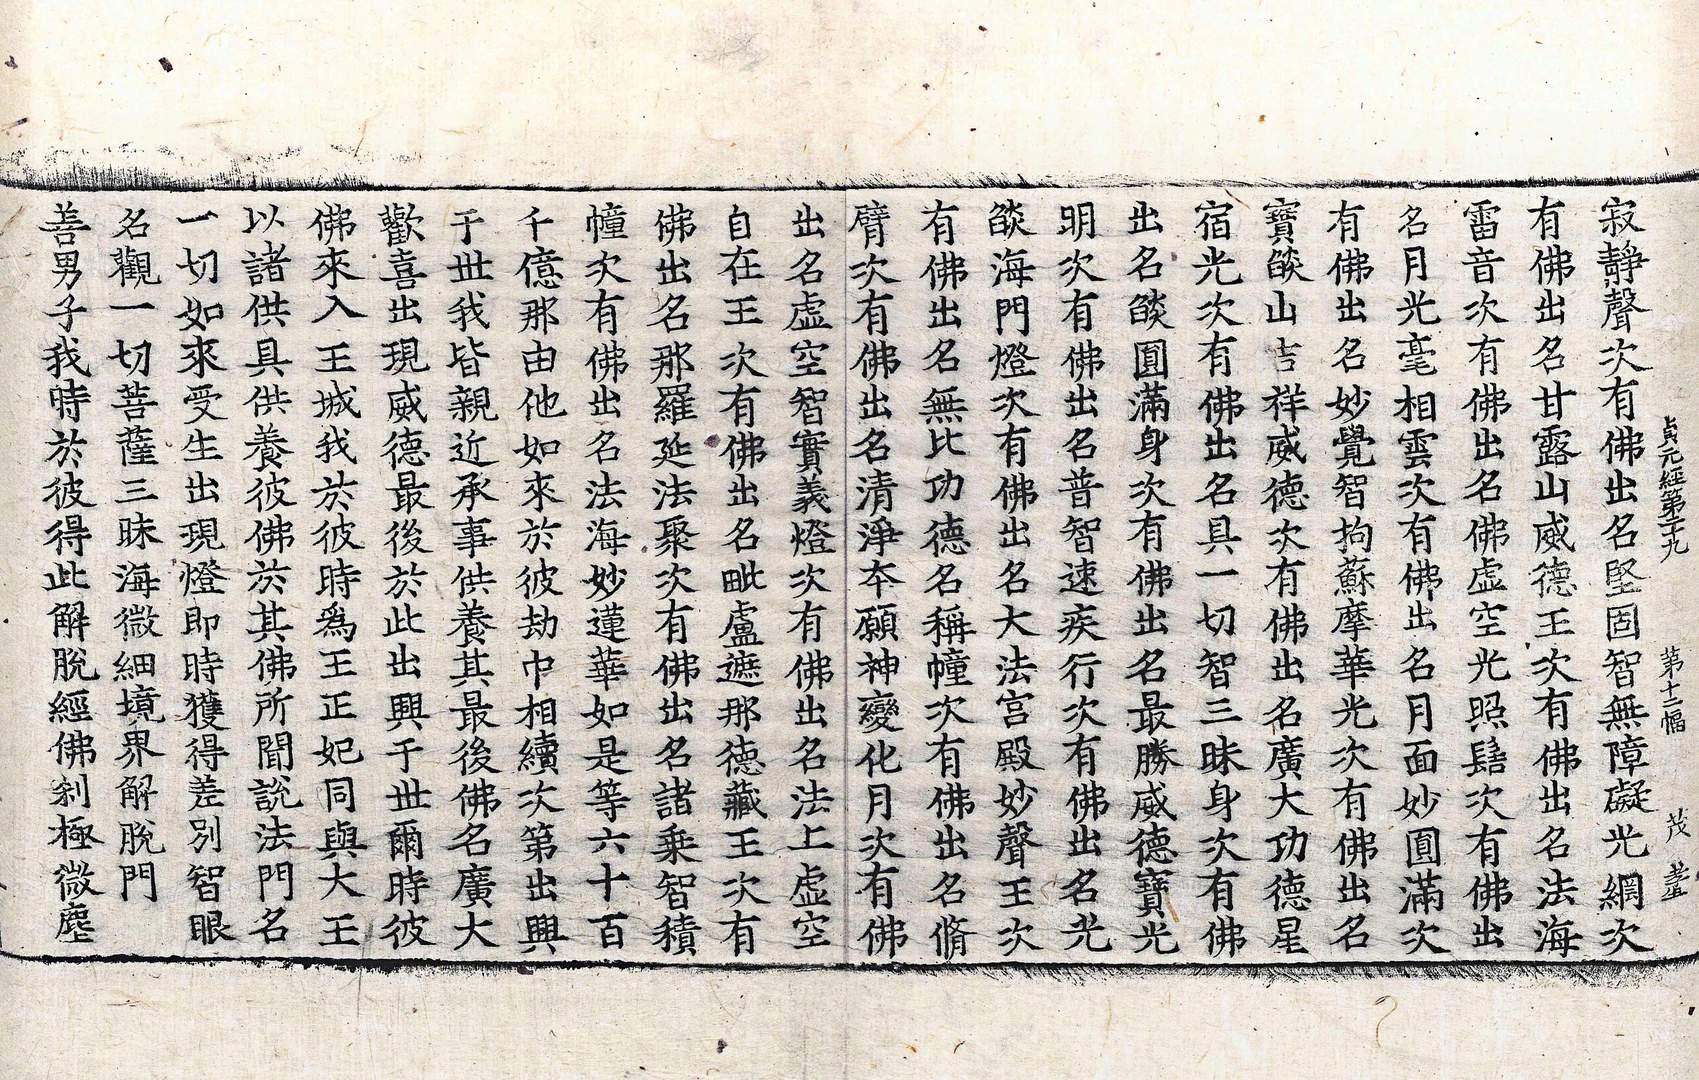 貞元經第二十九 第十二幅 茂
寂靜聲次有佛出名堅固智無障礙光網次
有佛出名甘露山威德王次有佛出名法海
雷音次有佛出名佛虛空光照髻次有佛出
名月光毫相雲次有佛出名月面妙圓滿次
有佛出名妙覺智拘蘇摩華光次有佛出名
寶燄山吉祥威德次有佛出名廣大功德星
宿光次有佛出名具一切智三昧身次有佛
出名燄圓滿身次有佛出名最勝威德寶光
明次有佛出名普智速疾行次有佛出名光
燄海門燈次有佛出名大法宮殿妙聲王次
有佛出名無比功德名稱幢次有佛出名脩
臂次有佛出名清淨本願神變化月次有佛
出名虛空智實義燈次有佛出名法上虛空
自在王次有佛出名毗盧遮那德藏王次有
佛出名那羅延法聚次有佛出名諸乘智積
幢次有佛出名法海妙蓮華如是等六十百
千億那由他如來於彼劫中相續次第出興
于世我皆親近承事供養其最後佛名廣大
歡喜出現威德最後於此出興于世爾時彼
佛來入王城我於彼時爲王正妃同與大王
以諸供具供養彼佛於其佛所聞說法門名
一切如來受生出現燈即時獲得差別智眼
名觀一切菩薩三昧海微細境界解脫門
善男子我時於彼得此解脫經佛剎極微塵